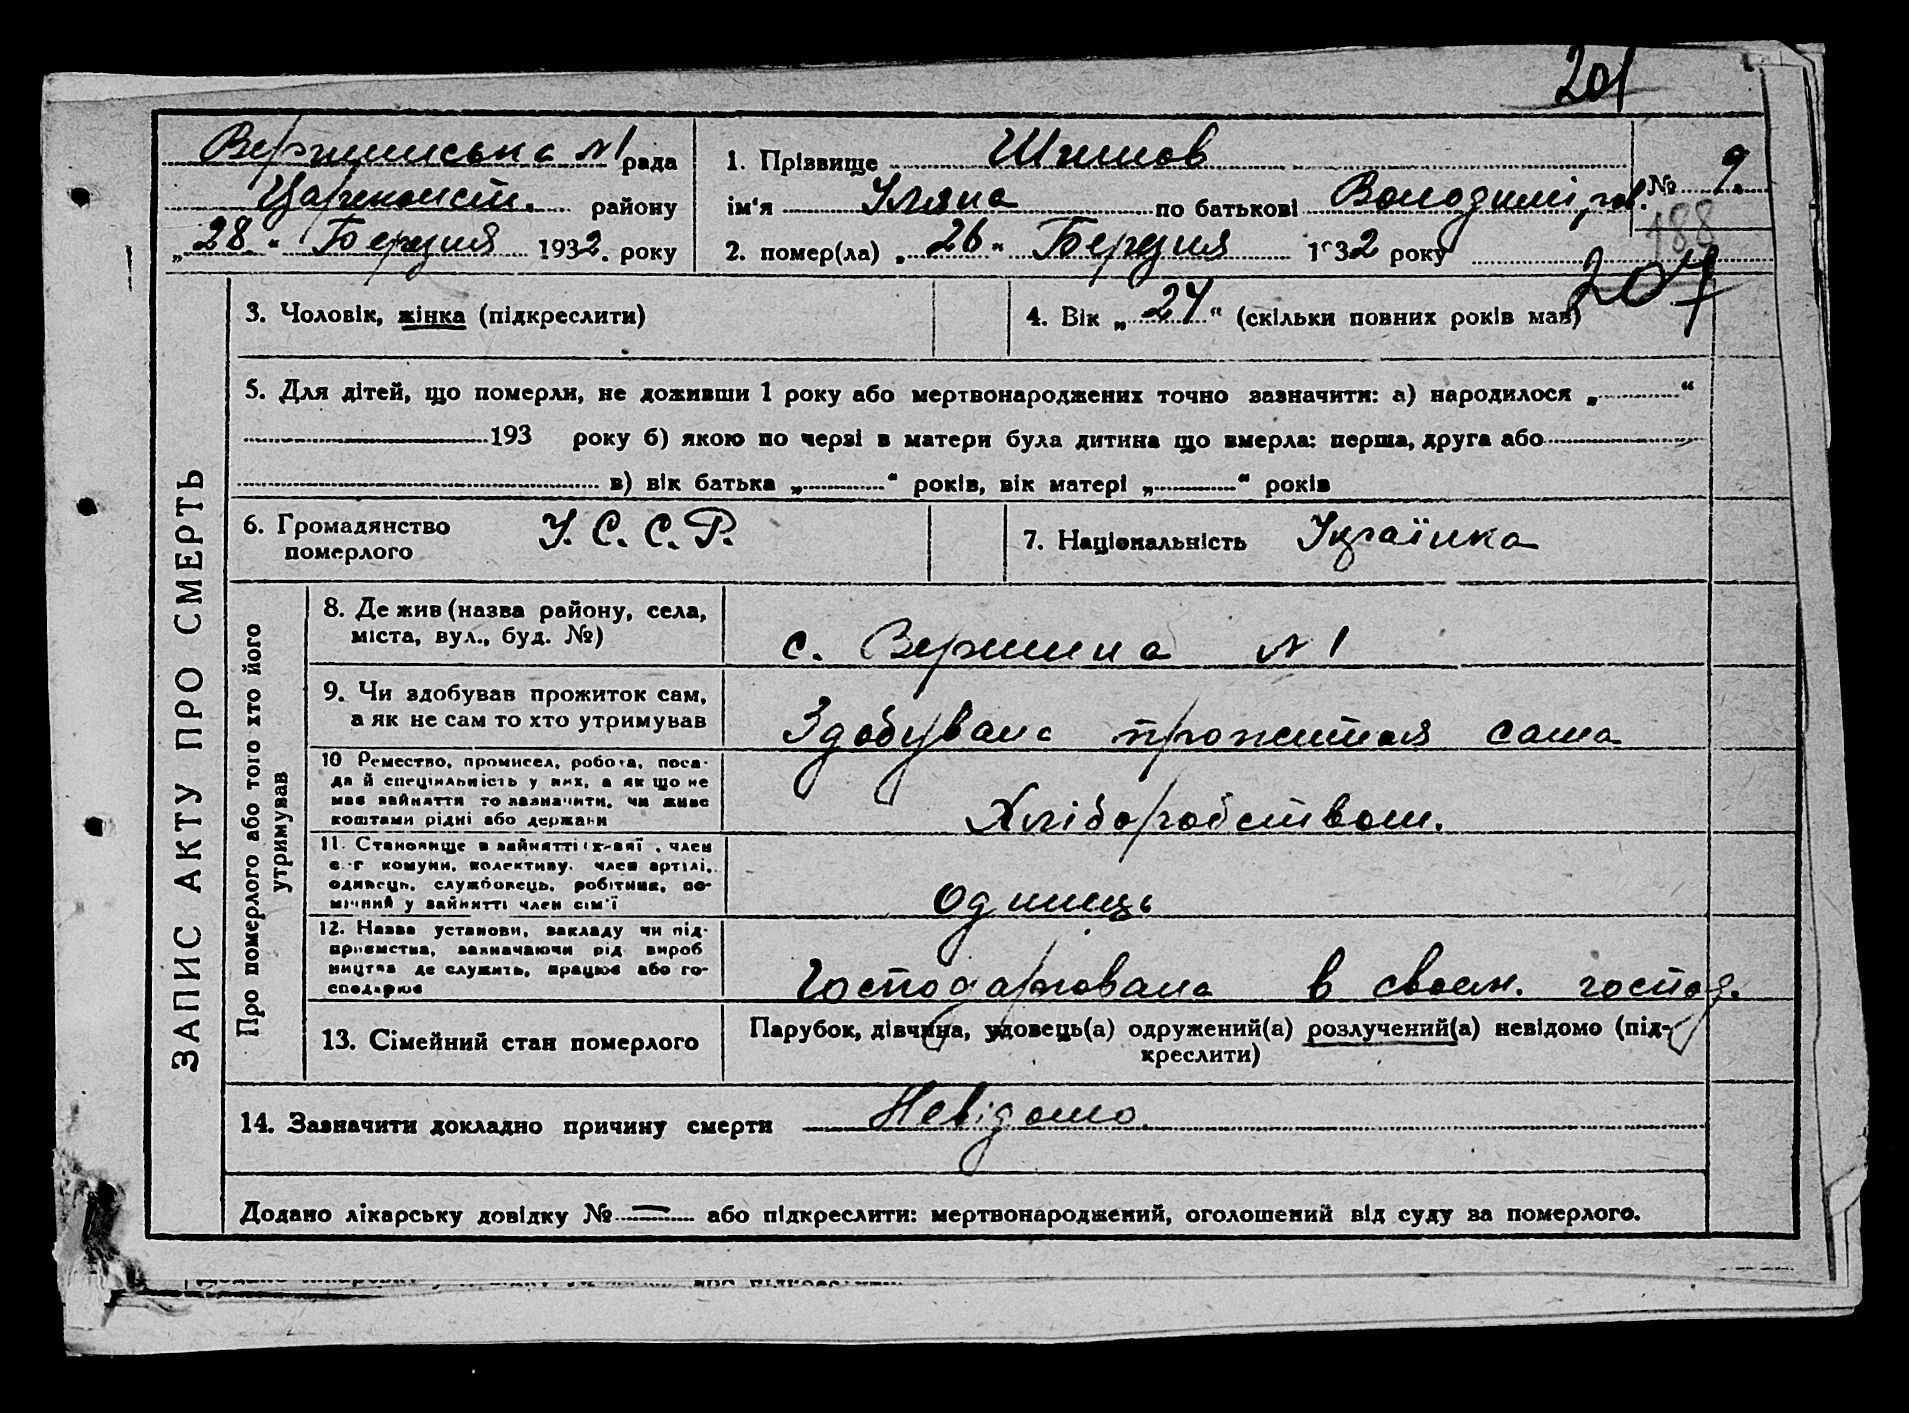 201
Вершинська №1 рада
Цареконст. району
„28“ Березня 1932. року
1. Прізвище Шишов
ім'я Уляна по батькові Володимі,ров.
2. помер(ла) „26“ Березня 1932 року
№ 9.
188
207
ЗАПИС АКТУ ПРО СМЕРТЬ
3. Чоловік, жінка (підкреслити)
4. Вік „24“ (скільки повних років мав)
5. Для дітей, що померли, не доживши 1 року або мертвонароджених точно зазначити: а) народилося „ “
193 року б) якою по черзі в матери була дитина що вмерла: перша, друга або
в) вік батька „ “ років, вік матері „ “ років
6. Громадянство
померлого
У. С. С. Р.
7. Національність Українка
Про померлого або того хто його
утримував
8. Де жив (назва району, села,
міста, вул., буд. №)
с. Вершина №1
9. Чи здобував прожиток сам,
а як не сам то хто утримував
Здобувала прожиття сама
10 Ремество, промисел, робота, поса-
да й спеціяльність у них, а як що не
мав зайняття то зазначити, чи живе
коштами рідні або держави
Хліборобством.
11. Становище в зайнятті , член
с.-г комуни, колективу, член артілі,
одинець, службовець, робітник, по-
мічний у зайнятті член сім'ї
одинець
12. Назва установи, закладу чи під-
приємства, зазначаючи рід вироб
ництва де служить, працює або го-
сподарює
Господарювала в своєм. господ.
13. Сімейний стан померлого
Парубок, дівчина, удовець(а) одружений(а) розлучений(а) невідомо (під-
креслити)
14. Зазначити докладно причину смерти Невідомо.
Додано лікарську довідку № — або підкреслити: мертвонароджений, оголошений від суду за померлого.